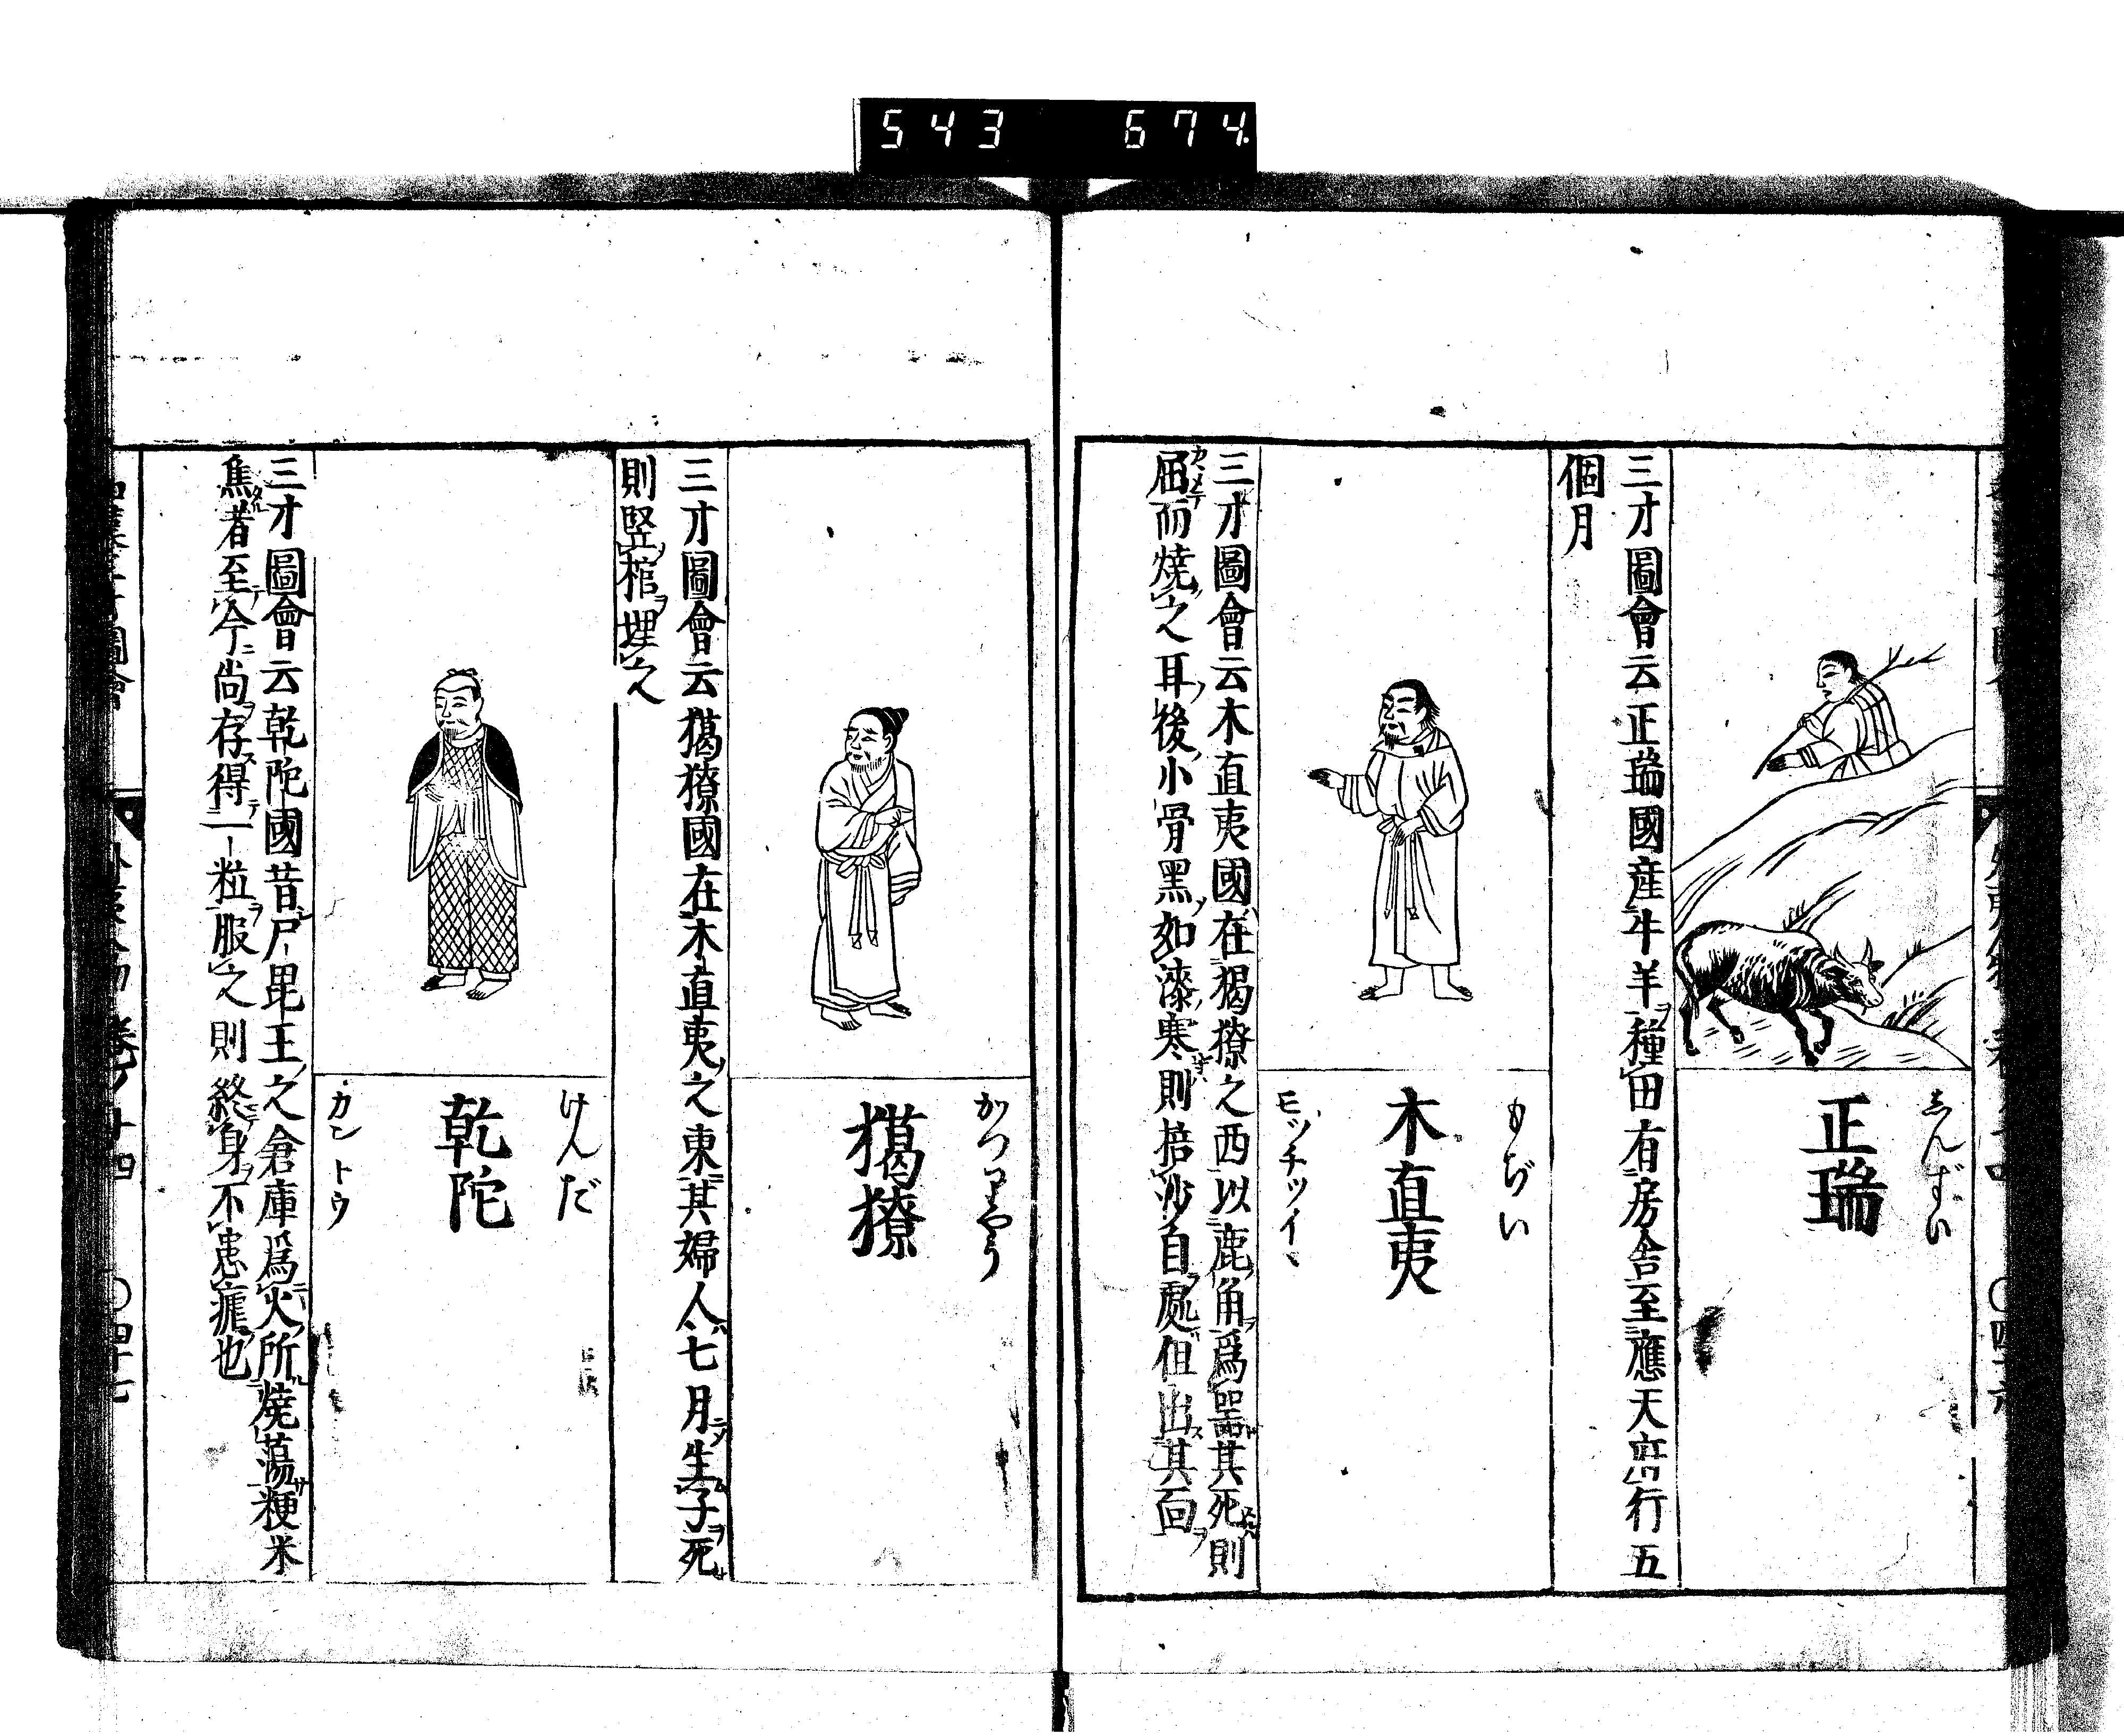 543 674
正瑞
しんずい
三才圖會云正瑞國産牛羊種田有房舎至應天府行五
個月
木直夷
もぢい
モッチッイヽ
三才圖會云木直夷國在獦獠之西以鹿角爲器其死則
屈而焼之耳後小骨黑如漆寒則掊沙自處但出其面
獦獠
かつりやう
三才圖會云獦獠國在木直夷之東其婦人七月生子死
則竪棺埋之
乾陀
けんだ
カントウ
三才圖會云乾陀國昔尸毘王之倉庫爲火所燒蕩粳米
焦者至今尚存得一粒服之則終身不患瘧也